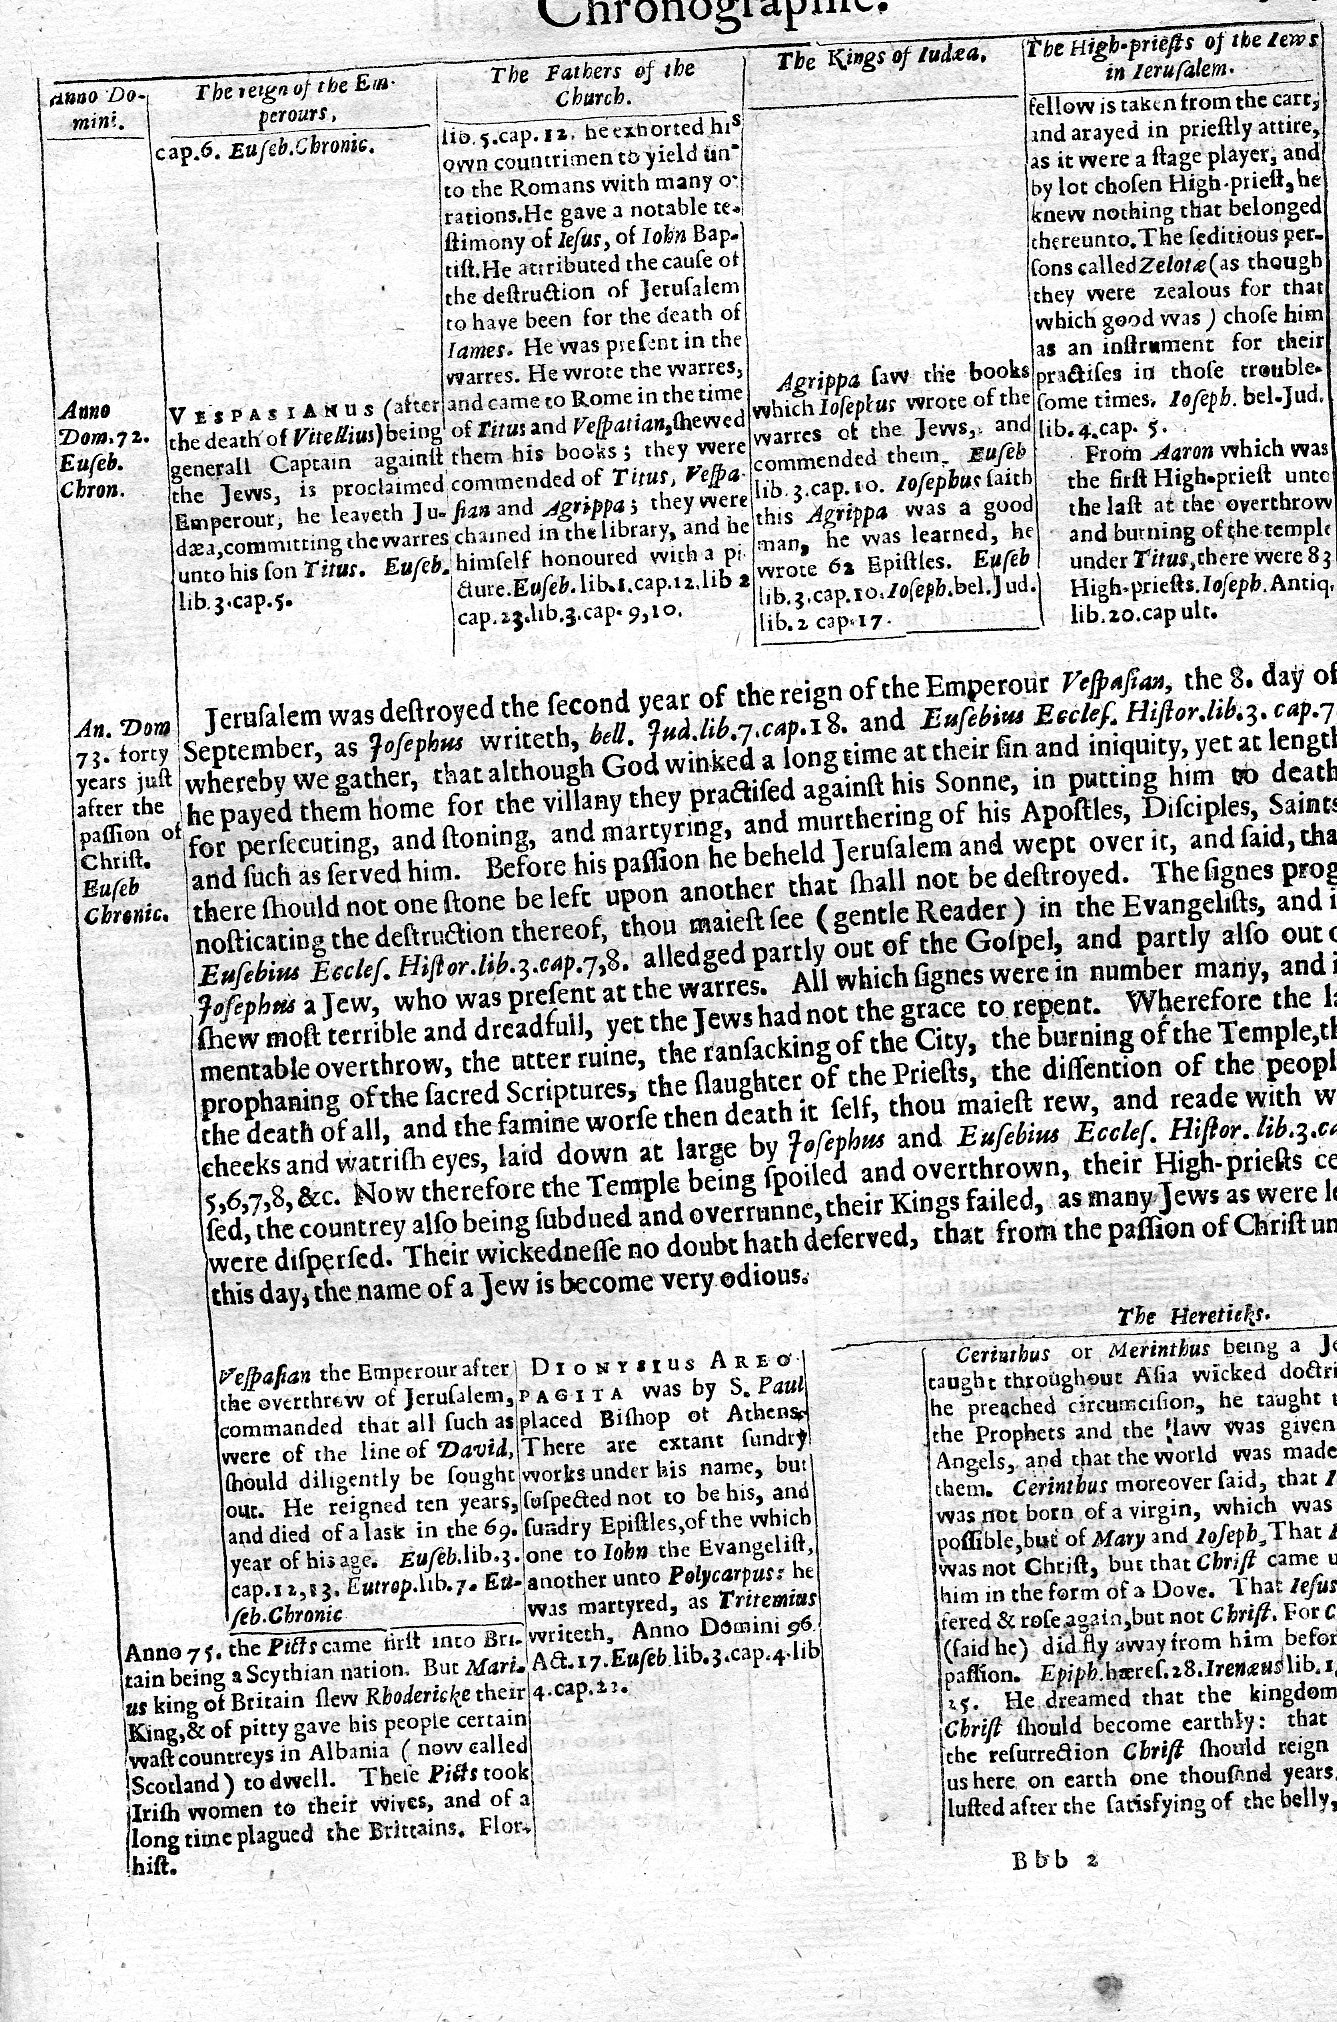 Chronographie.
Anno Do-
mini.
The reign of the Em-
perours.
cap.6. Euſeb.Chronic.
The Fathers of the
Church.
lib.5.cap.12. he exhorted his
own countrimen to yield un-
to the Romans with many o-
rations.He gave a notable te-
ſtimony of Ieſus, of Iohn Bap-
tiſt.He attributed the cauſe of
the deſtruction of Jeruſalem
to have been for the death of
Iames. He was preſent in the
warres. He wrote the warres,
and came to Rome in the time
of Titus and Veſpatian,ſhewed
them his books; they were
commended of Titus, Veſpa-
ſian and Agrippa; they were
chained in the library, and he
himſelf honoured with a pi
cture.Euſeb.lib.1.cap.12.lib 2
cap.23.lib.3.cap.9,10.
The Kings of Iudæa.
Agrippa ſaw the books
which Ioſephus wrote of the
warres of the Jews, and
commended them. Euſeb
lib.3.cap.10. Ioſephus ſaith
this Agrippa was a good
man, he was learned, he
wrote 62 Epiſtles. Euſeb
lib.3.cap.10.Ioſeph.bel.Jud.
lib.2 cap.17.
The High-prieſts of the Iews
in Ieruſalem.
fellow is taken from the cart,
and arayed in prieſtly attire,
as it were a ſtage player, and
by lot choſen High-prieſt, he
knew nothing that belonged
thereunto.The ſeditious per-
ſons called Zelotæ (as though
they were zealous for that
which good was) choſe him
as an inſtrument for their
practiſes in thoſe trouble-
ſome times. Ioſeph. bel.Jud.
lib.4.cap. 5.
From Aaron which was
the firſt High-prieſt unto
the laſt at the overthrow
and burning of the temple
under Titus,there were 83
High-prieſts.Ioſeph.Antiq.
lib.20.cap ult.
Anno
Dom.72.
Euſeb.
Chron.
VESPASIANUS (after
the death of Vitellius) being
generall Captain againſt
the Jews, is proclaimed
Emperour, he leaveth Ju-
dæa,committing the warres
unto his ſon Titus. Euſeb.
lib.3.cap.5.
An. Dom
73. forty
years juſt
after the
paſſion of
Chriſt.
Euſeb
Chronic.
Jeruſalem was deſtroyed the ſecond year of the reign of the Emperour Veſpaſian, the 8. day of
September, as Joſephus writeth, bell. Jud.lib.7.cap.18. and Euſebius Eccleſ. Hiſtor.lib.3.cap.7
whereby we gather, that although God winked a long time at their ſin and iniquity, yet at length
he payed them home for the villany they practiſed againſt his Sonne, in putting him to death
for perſecuting, and ſtoning, and martyring, and murthering of his Apoſtles, Diſciples, Saints
and ſuch as ſerved him. Before his paſſion he beheld Jeruſalem and wept over it, and ſaid, tha
there ſhould not one ſtone be left upon another that ſhall not be deſtroyed. The ſignes prog
noſticating the deſtruction thereof, thou maieſt ſee (gentle Reader) in the Evangeliſts, and i
Euſebius Eccleſ. Hiſtor.lib.3.cap.7,8. alledged partly out of the Goſpel, and partly alſo out o
Joſephus a Jew, who was preſent at the warres. All which ſignes were in number many, and i
ſhew moſt terrible and dreadfull, yet the Jews had not the grace to repent. Wherefore the la
mentable overthrow, the utter ruine, the ranſacking of the City, the burning of the Temple,th
prophaning of the ſacred Scriptures, the ſlaughter of the Prieſts, the diſſention of the peopl
the death of all, and the famine worſe then death it ſelf, thou maieſt rew, and reade with w
cheeks and watriſh eyes, laid down at large by Joſephus and Euſebius Eccleſ. Hiſtor. lib.3.ca
5,6,7,8,&c. Now therefore the Temple being ſpoiled and overthrown, their High-prieſts ce
ſed, the countrey alſo being ſubdued and overrunne,their Kings failed, as many Jews as were le
were diſperſed. Their wickedneſſe no doubt hath deſerved, that from the paſſion of Chriſt un
this day, the name of a Jew is become very odious.
Veſpaſian the Emperour after
the overthrow of Jeruſalem,
commanded that all ſuch as
were of the line of David,
ſhould diligently be ſought
out. He reigned ten years,
and died of a lask in the 69.
year of his age. Euſeb.lib.3.
cap.12,13. Eutrop.lib.7. Eu-
ſeb.Chronic
Anno 75. the Picts came firſt into Bri-
tain being a Scythian nation. But Mari-
us king of Britain ſlew Rhodericke their
King,& of pitty gave his people certain
waſt countreys in Albania (now called
Scotland) to dwell. Theſe Picts took
Iriſh women to their wives, and of a
long time plagued the Brittains. Flor.
hiſt.
DIONYSIUS AREO-
PAGITA was by S. Paul
placed Biſhop of Athens.
There are extant ſundry
works under his name, but
ſuſpected not to be his, and
ſundry Epiſtles,of the which
one to Iohn the Evangeliſt,
another unto Polycarpus: he
was martyred, as Tritemius
writeth, Anno Domini 96.
Act.17.Euſeb.lib.3.cap.4.lib
4.cap.23.
The Hereticks.
Cerinthus or Merinthus being a Je
taught throughout Aſia wicked doctri
he preached circumciſion, he taught t
the Prophets and the law was given
Angels, and that the world was made
them. Cerinthus moreover ſaid, that I
was not born of a virgin, which was
poſſible,but of Mary and Ioſeph. That I
was not Chriſt, but that Chriſt came u
him in the form of a Dove. That Ieſus
fered & roſe again,but not Chriſt. For C
(ſaid he) did fly away from him befor
paſſion. Epiph.hæreſ.28.Irenæus lib.1,
25. He dreamed that the kingdom
Chriſt ſhould become earthly: that
the reſurrection Chriſt ſhould reign
us here on earth one thouſand years,
luſted after the ſatisfying of the belly,
Bbb 2